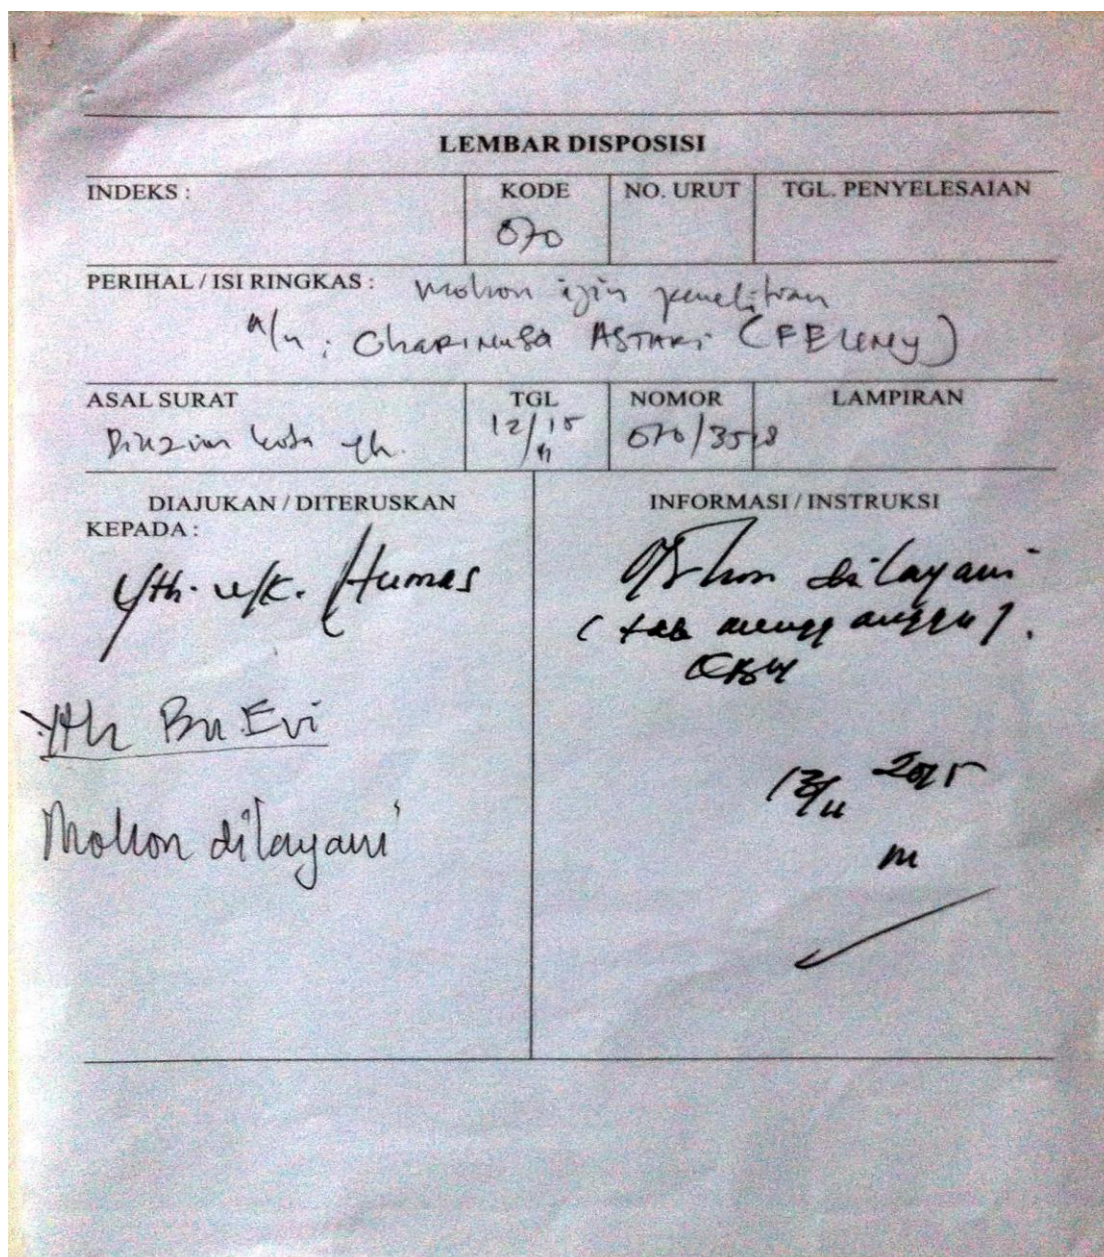 LEMBAR DISPOSISI
INDEKS :
KODE
070
NO. URUT
TGL. PENYELESAIAN
PERIHAL / ISI RINGKAS : Mohon ijin penelitian
a/n : ASTARI
ASAL SURAT
Dinzin kota yk.
TGL
12/15
11
NOMOR
070/3518
LAMPIRAN
DIAJUKAN / DITERUSKAN
KEPADA :
Yth. Humas
Yth Bu Evi
Mohon dilayani
INFORMASI / INSTRUKSI
Mohon dilayani
(tak mengganggu).
13/11 2015